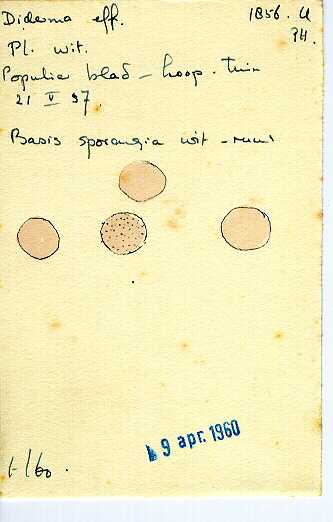 Diderma eff. 1856. U
Pl. wit.
Populia blad - hoop. Tuin
21 V 37.
Basis sporangia wit -
9 apr. 1960
1-/60.